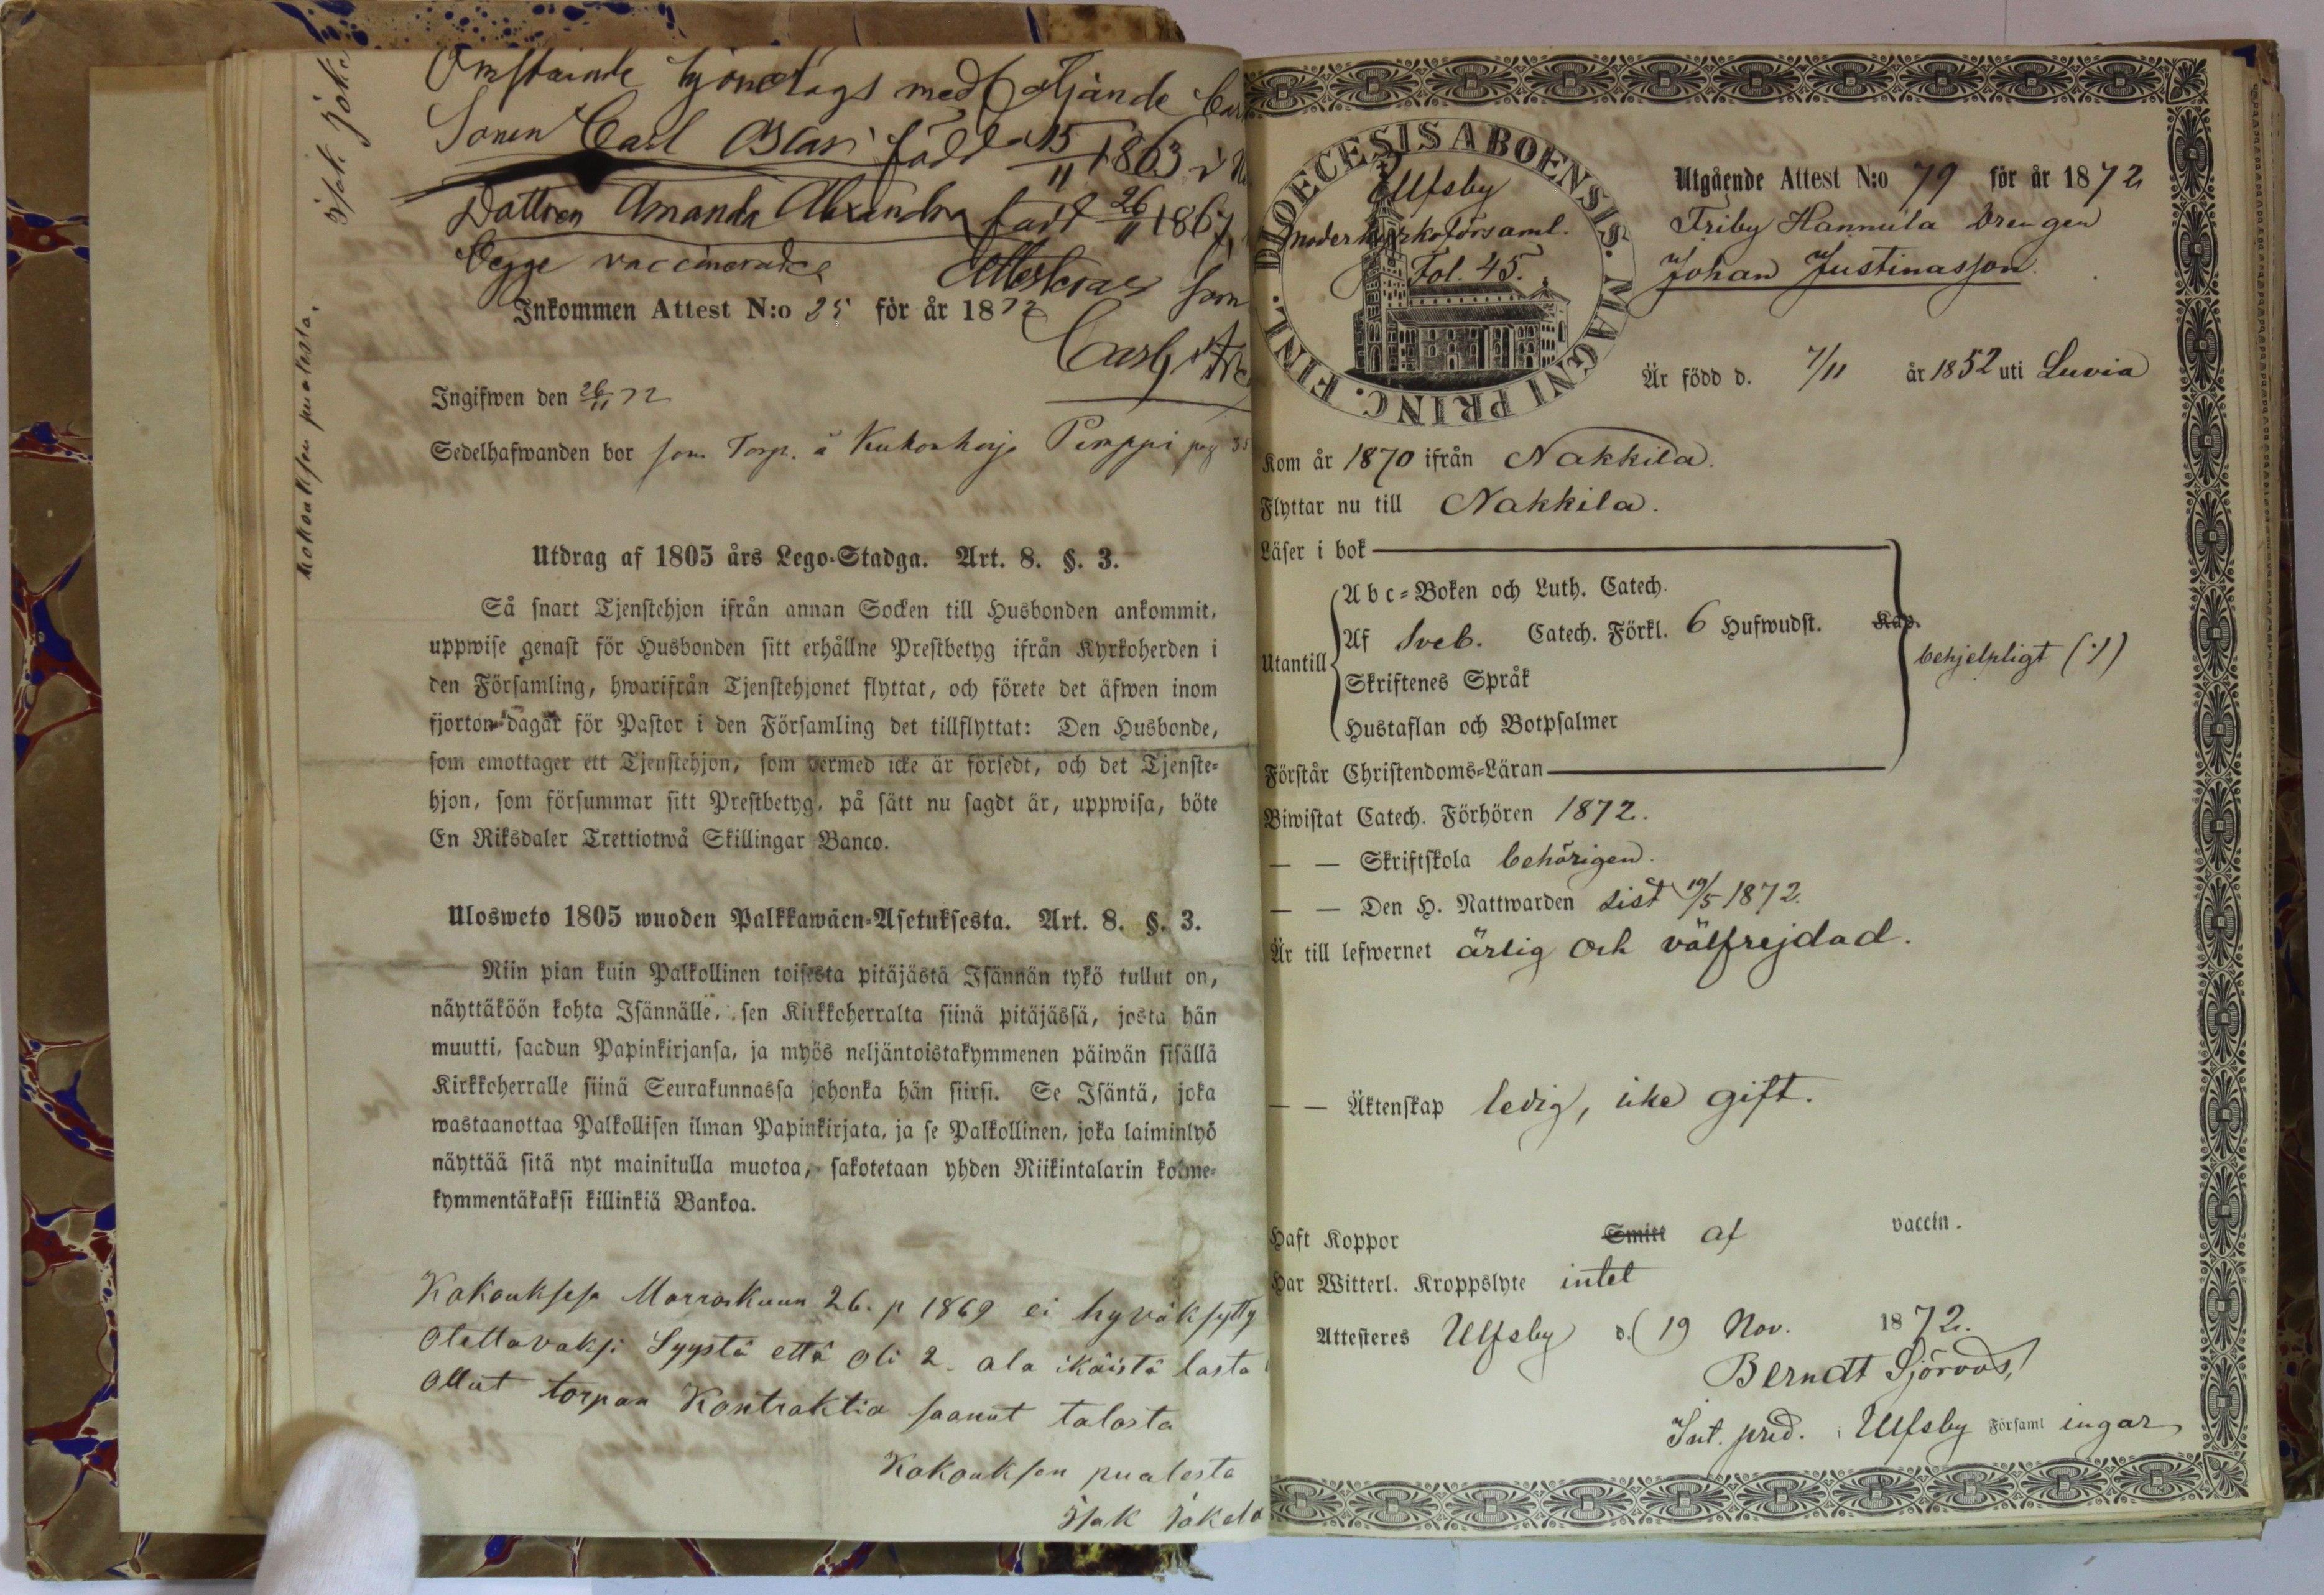 Omstående hjonelags medföljande
Sonen Carl Oscar född 15/11 1863 i
Dottren Amanda Alexandra född 26/11 1867,
begge vaccinerade Attesteras som
Inkommen Attest N:o 25 för år 1872
Ingifwen den 26/11 72
Sedelhafwanden bor som Torp. å Kukonharja Pemppi pag 35
Utdrag af 1805 års Lego-Stadga. Art. 8. §. 3.
Så snart Tjenstehjon ifrån annan Socken till Husbonden ankommit,
uppwise genast för Husbonden sitt erhållne Prestbetyg ifrån Kyrkoherden i
den Församling, hwarifrån Tjenstehjonet flyttat, och förete det äfwen inom
fjorton dagar för Pastor i den Församling det tillflyttat: Den Husbonde,
som emottager ett Tjenstehjon, som dermed icke är försedt, och det Tjenste-
hjon, som försummar sitt Prestbetyg, på sätt nu sagdt är, uppwisa, böte
En Riksdaler Trettiotwå Skillingar Banco.
Ulosweto 1805 wuoden Palkkawäen-Asetuksesta. Art. 8. §. 3.
Niin pian kuin Palkollinen toisesta pitäjästä Isännän tykö tullut on,
näyttäköön kohta Isännälle, sen Kirkkoherralta siinä pitäjässä, josta hän
muutti, saadun Papinkirjansa, ja myös neljäntoistakymmenen päiwän sisällä
Kirkkoherralle siinä Seurakunnassa johonka hän siirsi. Se Isäntä, joka
wastaanottaa Palkollisen ilman Papinkirjata, ja se Palkollinen, joka laiminlyö
näyttää sitä nyt mainitulla muotoa, sakotetaan yhden Riikintalarin kolme-
kymmentäkaksi killinkiä Bankoa.
Kokouksesa Marraskuun 26. p 1869 ei hyväksytty
Otettavaksi Syystä että oli 2. ala ikäistä lasta
Ollut torpan Kontraktia saanut talosta
Kokouksen puolesta
Isak Jokela
Kokouksen puolesta.
Isak Joke
DIOECESIS ABOENSIS. MAGNI PRINC. FINL.
Ulfsby
moderkyrkoförsaml.
Fol. 45.
Utgående Attest N:o 79 för år 1872
Friby Hannula Drengen
Johan Justinasson.
Är född d. 7/11 år 1852 uti Luvia
Kom år 1870 ifrån Nakkila.
Flyttar nu till Nakkila.
Läser i bok
Utantill
Abc-Boken och Luth. Catech.
Af Sveb. Catech. Förkl. 6 Hufwudst. Kap.
Skriftenes Språk
Hustaflan och Botpsalmer
behjelpligt (·/)
Förstår Christendoms-Läran
Biwistat Catech. Förhören 1872.
— — Skriftskola behörigen.
— — Den H. Nattwarden sist 19/5 1872.
Är till lefwernet ärlig och välfrejdad.
— — Äktenskap ledig, icke gift.
Haft Koppor Smitt af vaccin.
Har Witterl. Kroppslyte intet
Attesteres Ulfsby d. 19 Nov. 1872.
Berndt Sjöroos,
Int. pred. i Ulfsby Församl ingar